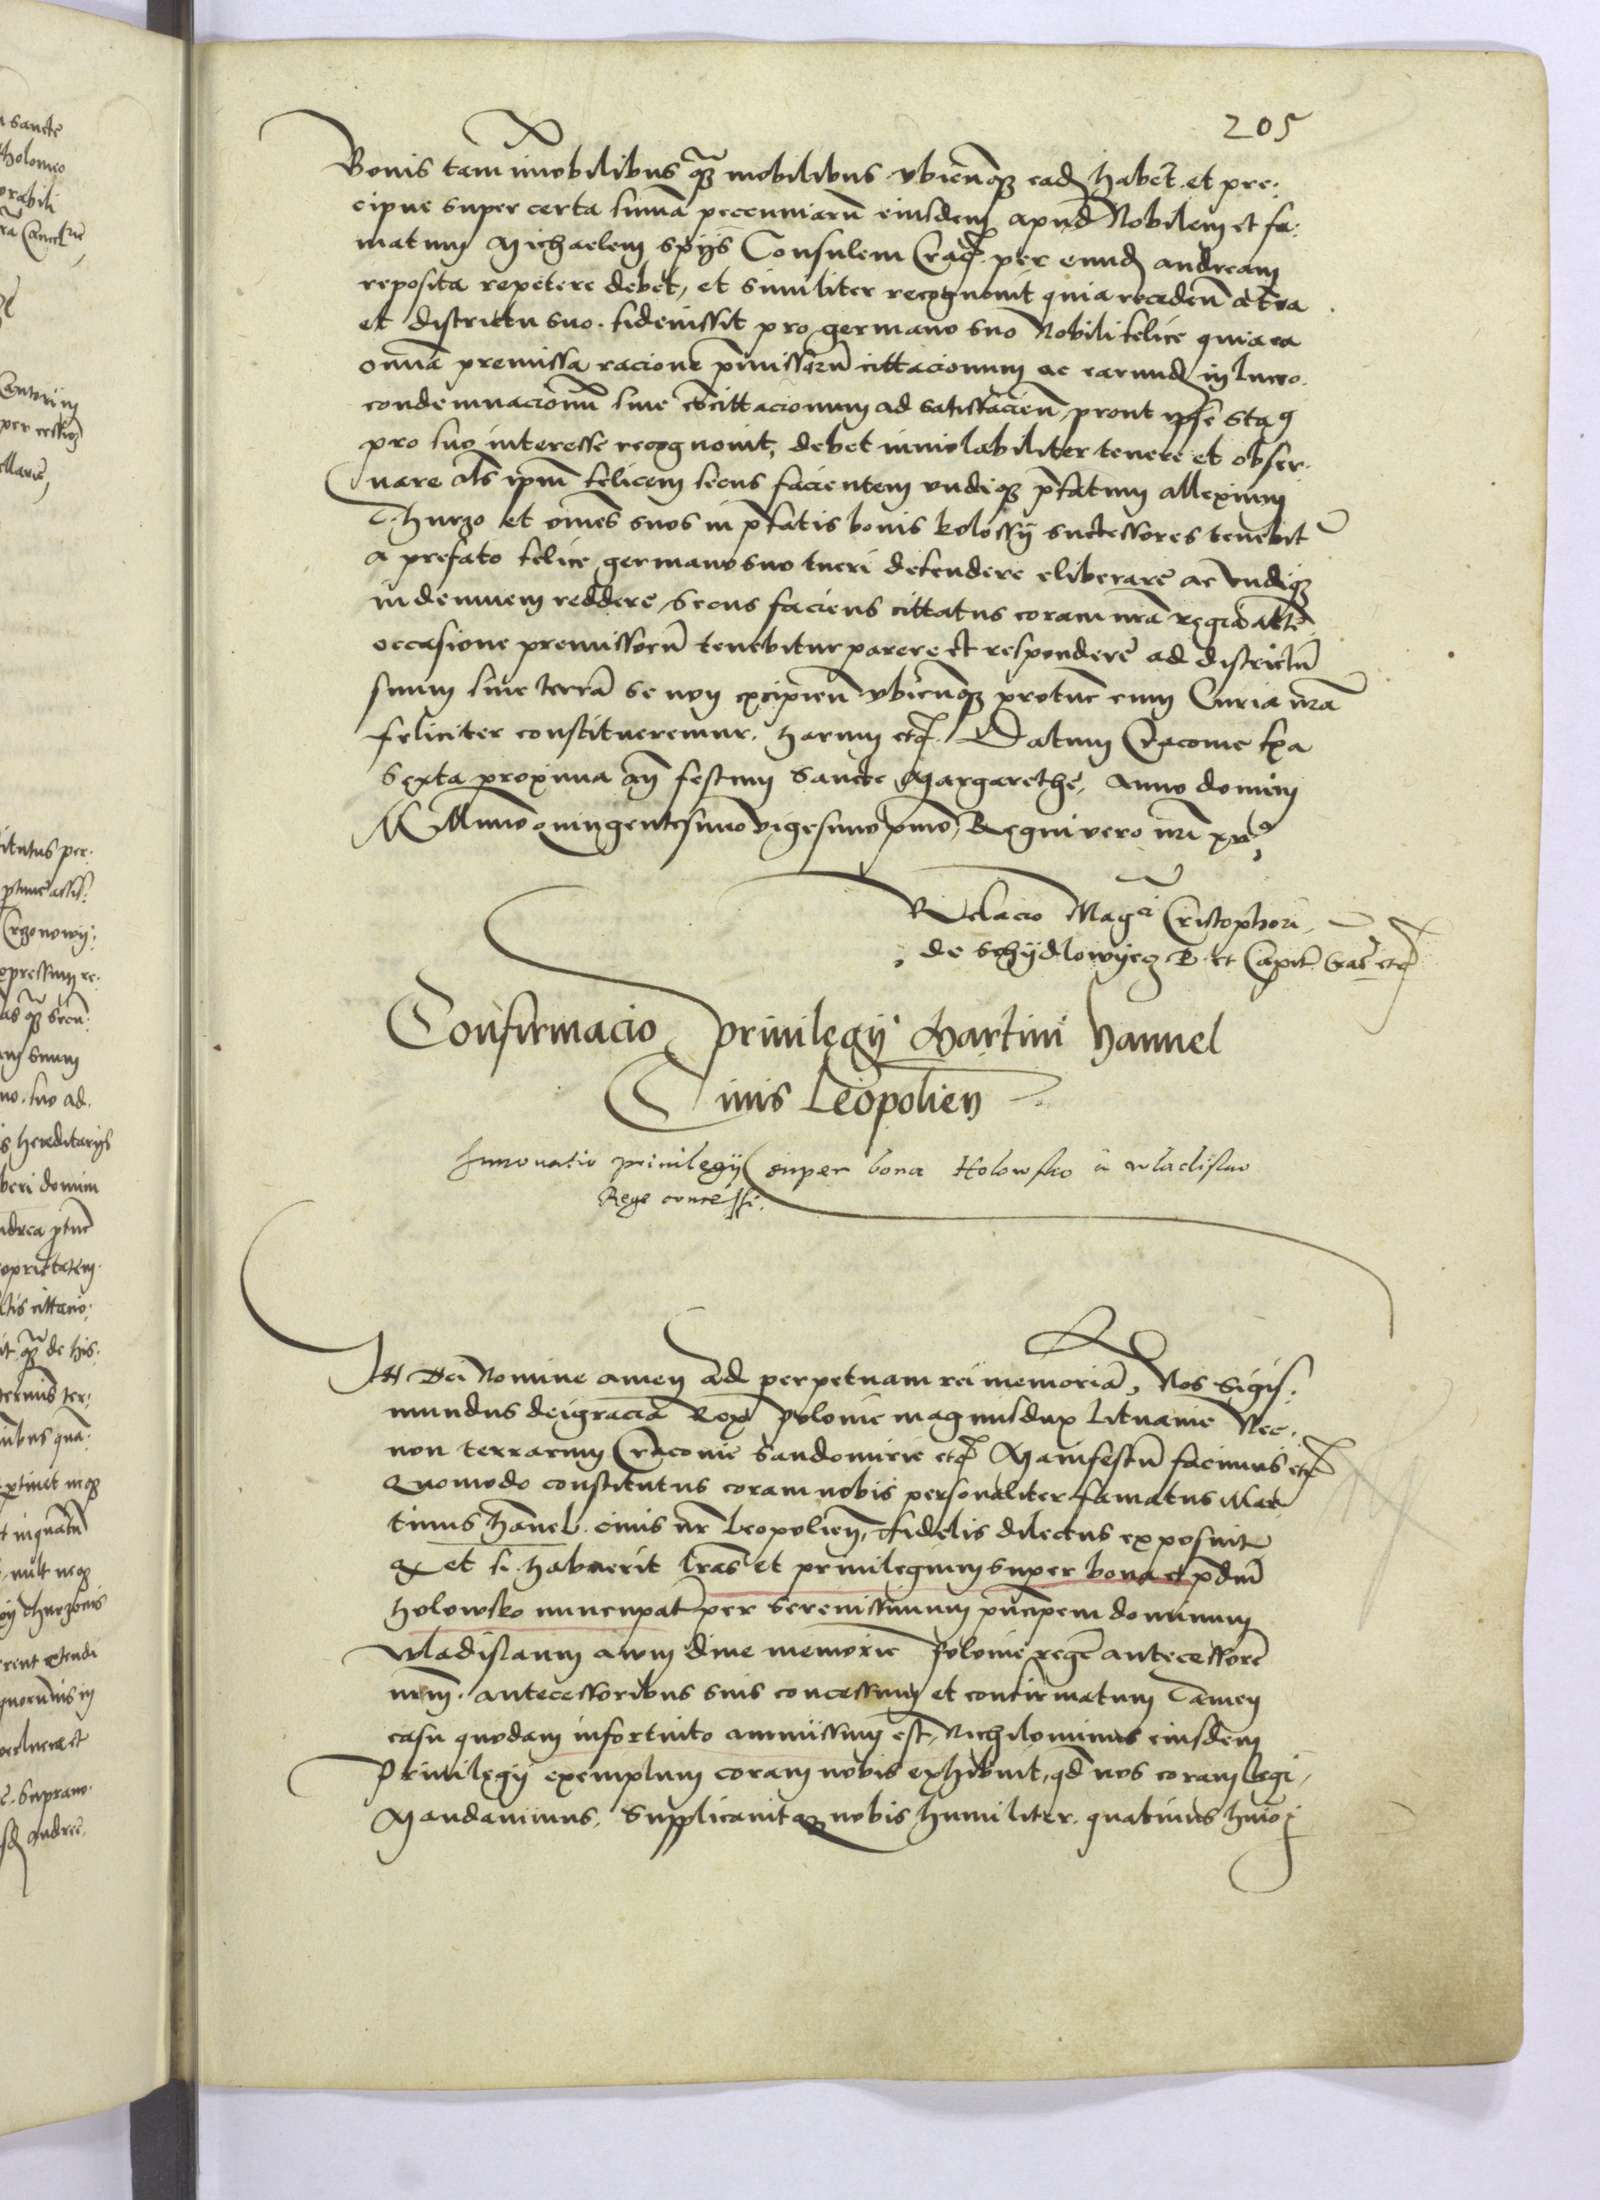 205
Bonis tam imobilibus q̃ꝫ mobilibus vbicunqꝫ eadẽ habet et pre:
cipue super certa sum̃a peccuniarũ eiusdem apud Nobilem et fa:
matum Michaelem Spijs Consulem Crac̃ per eund̃ andream
reposita repetere debet, et similiter recognouit quia receden̄ a t̃ra
et districtu suo fideiussit pro germano suo Nobili felice quia ea
om̃ia premissa racione p̃missarũ cittacionum ac earund̃ in lucro
condemnacionũ siue cittacionum ad satisfacien̄, prout ipse Sta
pro suo interesse recognouit, debet inuiolabiliter tenere et obser:
uare als ip̃m felicem secus facientem vndiqꝫ p̃fatum allexium
Thurzo et om̃es suos in p̃fatis bonis kolossij successores tenebit̃
a prefato felice germano suo tueri defendere eliberare ac vndiqꝫ
indemnem reddere, Secus faciens cittatus coram nr̃a regia
occasione premissorũ tenebitur parere et respondere ad districtũ
suum siue terrã se non excipien̄ vbicunqꝫ protunc cum Curia nr̃a
feliciter constitueremur. harum etc̃. Datum Cracouie fr̃a
Sexta proxima an̄ festum Sancte Margarethe, anno domini
Millimo quingentesimo vigesimo p̃mo, Regni vero nr̃i xv°
Relacio Mag̃ci Cristophori
de Schijdlowijecz et Capit̃ etc̃
Confirmacio priuilegij Martini hannel
Ciuis Leopolien̄
Innouatio priuilegij super bona Holowsko a wladislao
Rege concessi.
IN Dei Nomine amen ad perpetuam rei memoriã, Nos Sigis:
mundus dei gracia Rex polonie magnus dux lituanie Nec:
non terrarum Cracouie Sandomirie etc̃ Manifestũ facimus etc̃
Quomodo constitutus coram nobis personaliter famatus Mar
tinus hannel ciuis nr̃ leopolien̄, fidelis dilectus exposuit
et si habuerit l̃ras et priuilegium super bona et p̃diũ
holowsko nuncupat̃ per Serenissimum principem dominum
wladislaum auum diue memorie polonie regẽ antecessorẽ
nr̃m antecessoribus suis concessum et confirmatum Tamen
casu quodam infortuito ammissum est, Nichilominus eiusdem
Priuilegij exemplum coram nobis exhibuit, qd̃ nos coram legi
Mandauimus, Supplicauitqꝫ nobis humiliter quatinus hmõi